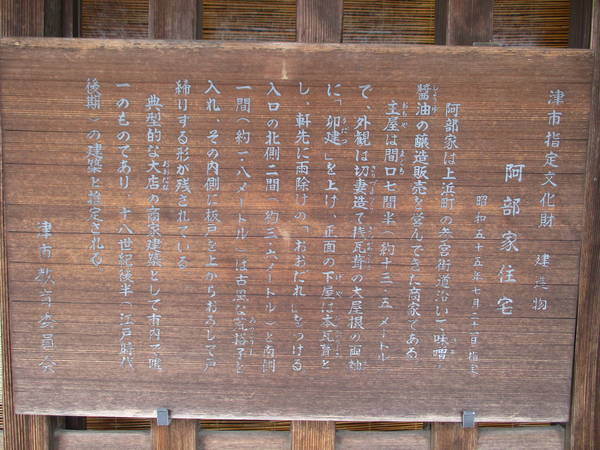 津市指定文化財 建造物
阿部家住宅
昭和五十五年七月二十一日指定
阿部家は上浜町の参宮街道沿いで味噌
醬油の醸造販売を営んできた商家である
主屋は間口七間半（約十三・五メートル
で、外観は切妻造で桟瓦葺の大屋根の両袖
に「卯建」を上げ、正面の下屋は本瓦葺と
し、軒先に雨除けの「おおだれ」をつける
入口の北側二間（約三・六メートル）と南側
一間（約一・八メートル）は古風な荒格子を
入れ、その内側に板戸を上からおろして戸
締りする形が残されている
典型的な大店の商家建築として市内で唯
一のものであり、十八世紀後半（江戸時代
後期）の建築と推定される
津市教育委員会